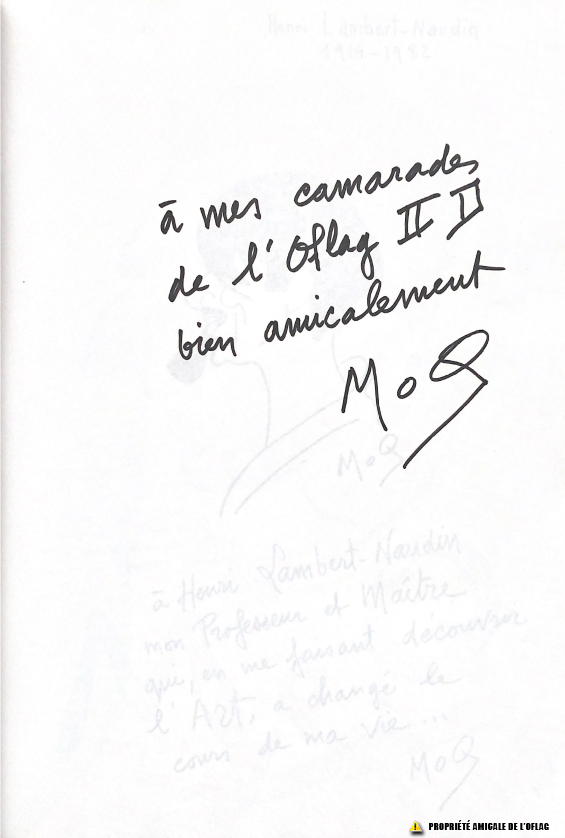 Henri Lambert-Naudin
1914-1982
à mes camarades
de l'Oflag II D
bien amicalement
MoQ
MoQ
à Henri Lambert-Naudin
mon Professeur et Maître
qui, en me faisant découvrir
l'Art, a changé le
cours de ma vie...
MoQ
PROPRIÉTÉ AMICALE DE L'OFLAG